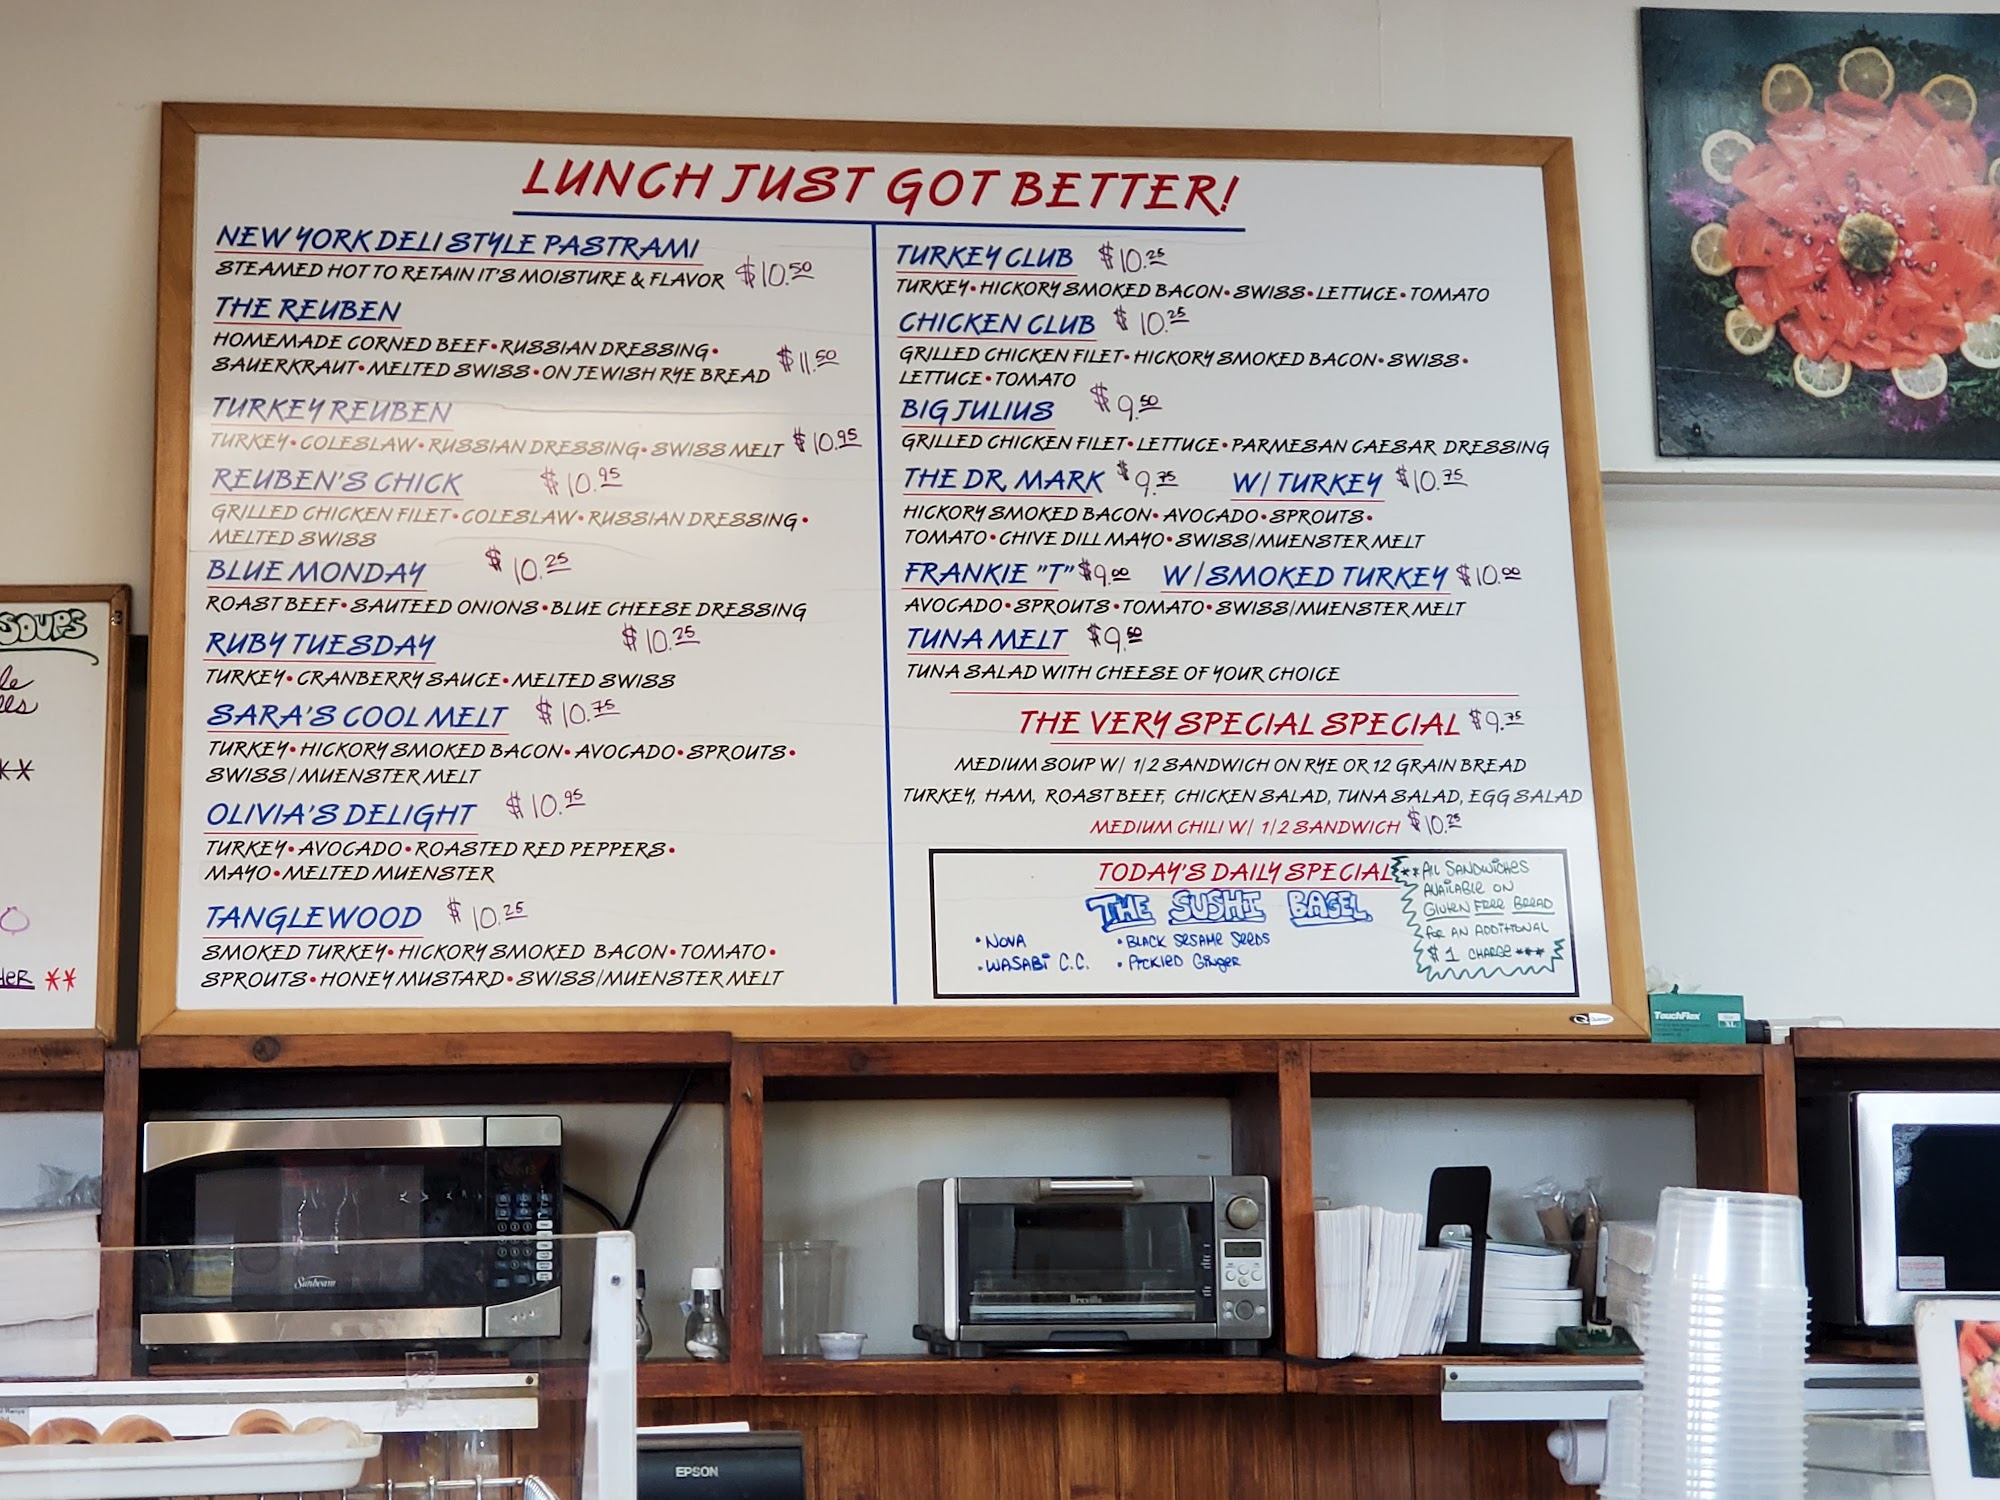 LUNCH JUST GOT BETTER!
NEW YORK DELI STYLE PASTRAMI
STEAMED HOT TO RETAIN IT'S MOISTURE & FLAVOR $10.50
THE REUBEN
HOMEMADE CORNED BEEF • RUSSIAN DRESSING •
SAUERKRAUT • MELTED SWISS • ON JEWISH RYE BREAD $11.50
TURKEY REUBEN
TURKEY • COLESLAW • RUSSIAN DRESSING • SWISS MELT $10.95
REUBEN'S CHICK $10.95
GRILLED CHICKEN FILET • COLESLAW • RUSSIAN DRESSING •
MELTED SWISS
BLUE MONDAY $10.25
ROAST BEEF • SAUTEED ONIONS • BLUE CHEESE DRESSING
RUBY TUESDAY $10.25
TURKEY • CRANBERRY SAUCE • MELTED SWISS
SARA'S COOL MELT $10.75
TURKEY • HICKORY SMOKED BACON • AVOCADO • SPROUTS •
SWISS/MUENSTER MELT
OLIVIA'S DELIGHT $10.95
TURKEY • AVOCADO • ROASTED RED PEPPERS •
MAYO • MELTED MUENSTER
TANGLEWOOD $10.25
SMOKED TURKEY • HICKORY SMOKED BACON • TOMATO •
SPROUTS • HONEY MUSTARD • SWISS/MUENSTER MELT
TURKEY CLUB $10.25
TURKEY • HICKORY SMOKED BACON • SWISS • LETTUCE • TOMATO
CHICKEN CLUB $10.25
GRILLED CHICKEN FILET • HICKORY SMOKED BACON • SWISS •
LETTUCE • TOMATO
BIG JULIUS $9.50
GRILLED CHICKEN FILET • LETTUCE • PARMESAN CAESAR DRESSING
THE DR. MARK $9.75 W/ TURKEY $10.75
HICKORY SMOKED BACON • AVOCADO • SPROUTS •
TOMATO • CHIVE DILL MAYO • SWISS/MUENSTER MELT
FRANKIE "T" $9.00 W/ SMOKED TURKEY $10.00
AVOCADO • SPROUTS • TOMATO • SWISS/MUENSTER MELT
TUNA MELT $9.50
TUNA SALAD WITH CHEESE OF YOUR CHOICE
THE VERY SPECIAL SPECIAL $9.75
MEDIUM SOUP W/ 1/2 SANDWICH ON RYE OR 12 GRAIN BREAD
TURKEY, HAM, ROAST BEEF, CHICKEN SALAD, TUNA SALAD, EGG SALAD
MEDIUM CHILI W/ 1/2 SANDWICH $10.25
TODAY'S DAILY SPECIAL
THE SUSHI BAGEL
• NOVA
• WASABI C.C.
• BLACK SESAME SEEDS
• PICKLED GINGER
**ALL SANDWICHES
AVAILABLE ON
GLUTEN FREE BREAD
FOR AN ADDITIONAL
$1 CHARGE***
SOUPS
**
**
TouchFlex
XL
Sunbeam
Breville
EPSON